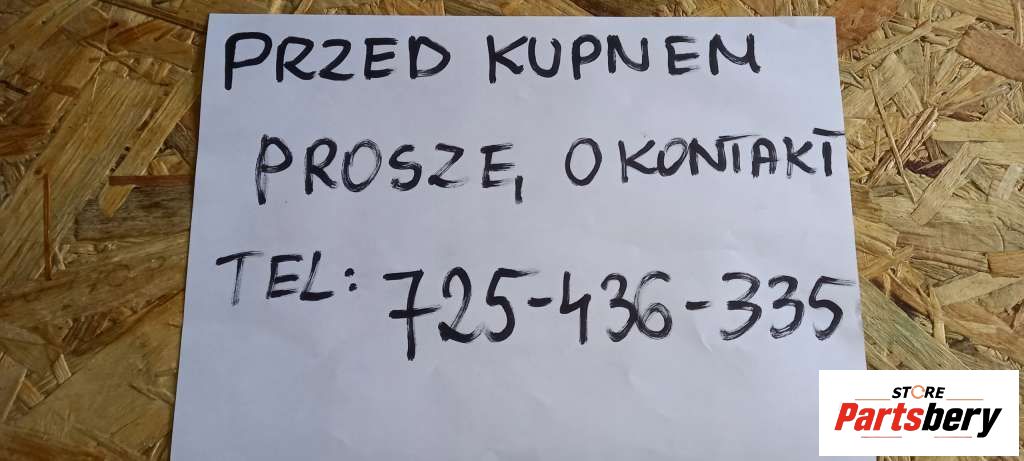 PRZED KUPNEM
PROSZĘ O KONTAKT
TEL: 725-436-335
STORE
Partsbery